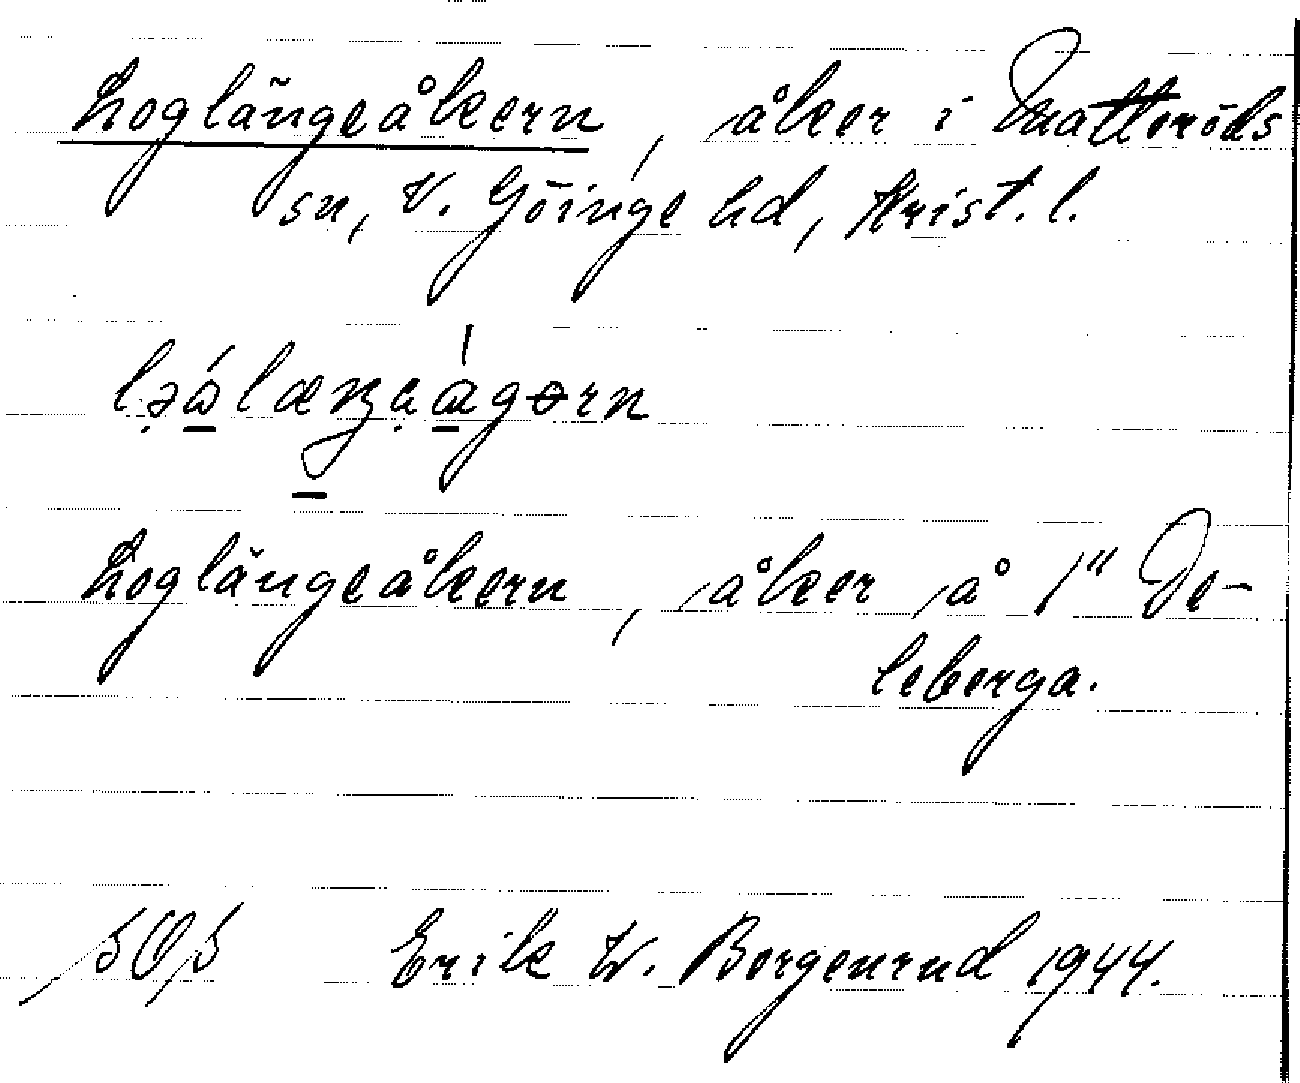 Loglängeåkern, åker i Matteröds
sn, V. Göinge hd, Krist. l.
Loglängeåkern, åker å 1" De-
leberga.
SOS Erik W. Borgenrud 1944.